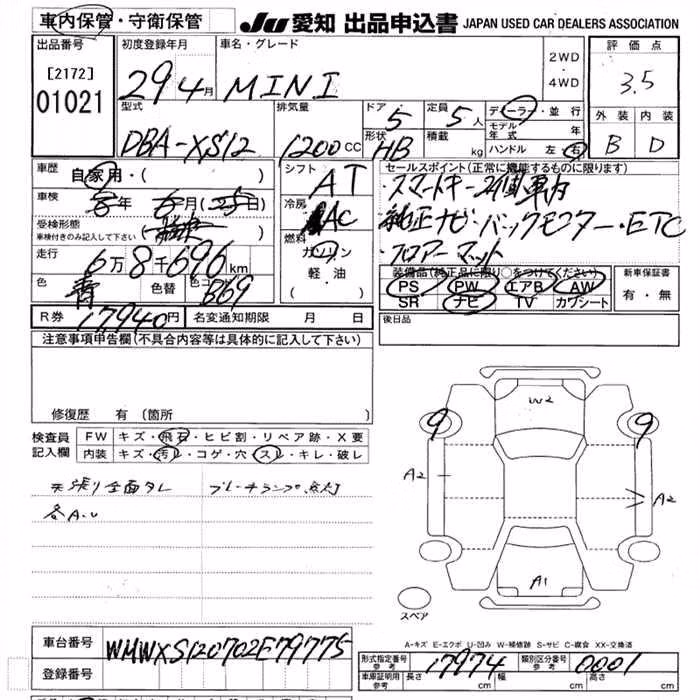 車内保管・守衛保管 JU 愛知 出品申込書 JAPAN USED CAR DEALERS ASSOCIATION
出品番号 初度登録年月 車名・グレード 2WD・4WD 評価点
[2172] 01021 29 4月 MINI 3.5
型式 排気量 ドア 5 定員 5人 ディーラー・並行 外装 内装
DBA-XS12 1200cc 形状 HB 積載 kg モデル年式 年 B D
ハンドル 左・右
車歴 自家用・( ) シフト AT セールスポイント(正常に機能するものに限ります)
車検 年 月( 日) 冷房 AC ・スマートキー2個車内
受検形態 車検付きのみ記入して下さい ・純正ナビ・バックモニター・ETC
走行 6万8千696km 燃料 ガソリン 軽・油 ・フロアーマット
色 青 色替 色コ B69 装備品(純正品に限り○をつけてください) 新車保証書
PS PW エアB AW 有・無
SR ナビ TV カワシート
R券 17940円 名変通知期限 月 日 後日品
注意事項申告欄(不具合内容等は具体的に記入して下さい)
修復歴 有(箇所 )
検査員記入欄 FW キズ・飛石・ヒビ割・リペア跡・X要
内装 キズ・汚レ・コゲ・穴・スレ・キレ・破レ
天張り全面タレ ブレーキランプ点灯
各A.U
W2
9 9
A2 A2
A1
スペア
A-キズ E-エクボ U-凹み W-補修跡 S-サビ C-腐食 XX-交換済
車台番号 WMWXS120702E79775 形式指定番号 参考 17974 類別区分番号 参考 0001
登録番号 車庫証明用 参考 長さ cm 幅 cm 高さ cm